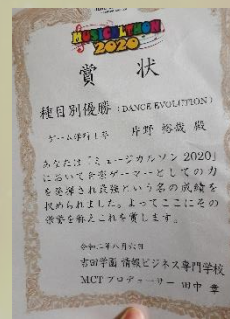 MUSICULTHON
2020
賞状
種目別優勝 (DANCE EVOLUTION)
片野 裕哉 殿
あなたは"ミュージカルソン 2020"
において音楽ゲーマーとしての力
を発揮され最強という名の成績を
収められました。よってここにその
栄誉を称えこれを賞します。
令和二年八月六日
吉田学園 情報ビジネス専門学校
MCT プロデューサー 田中 幸